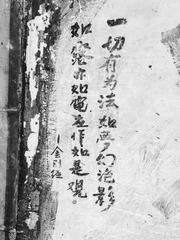 一切有为法如梦幻泡影
如露亦如電应作如是观
—金刚经